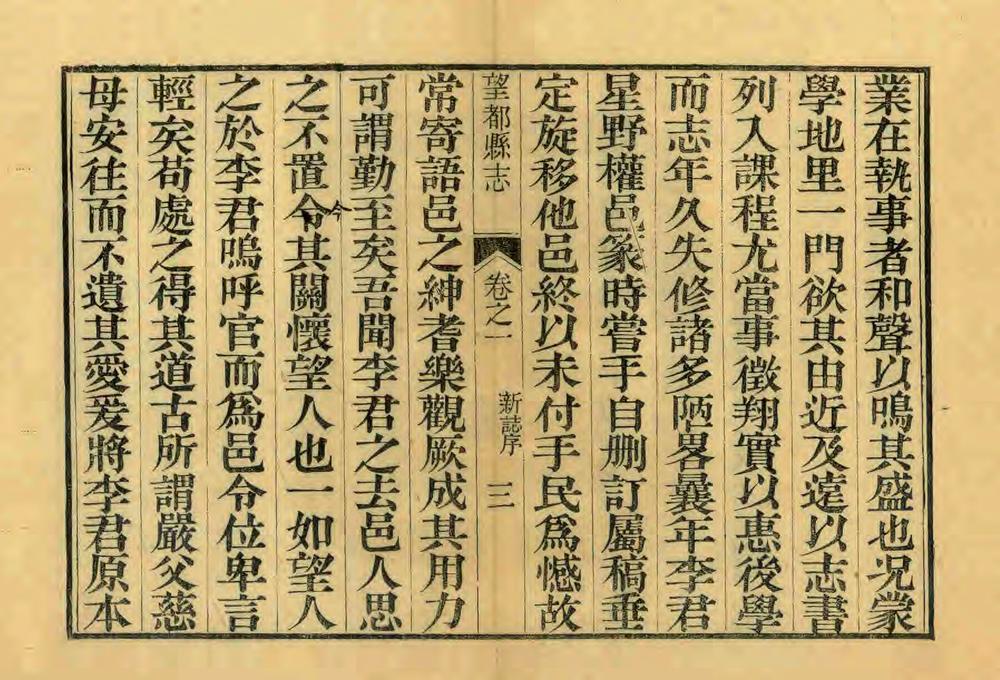 業在執事者和聲以鳴其盛也况蒙
學地里一門欲其由近及遠以志書
列入課程尤當事徵翔實以惠後學
而志年久失修諸多陋畧曩年李君
星野權邑篆時嘗手自删訂屬稿垂
定旋移他邑終以未付手民爲憾故
望都縣志
卷之一
新誌序
三
常寄語邑之紳耆樂觀厥成其用力
可謂勤至矣吾聞李君之去邑人思
之不置令其關懷望人也一如望人
今
之於李君嗚呼官而爲邑令位卑言
輕矣苟處之得其道古所謂嚴父慈
母安往而不遺其愛爰將李君原本